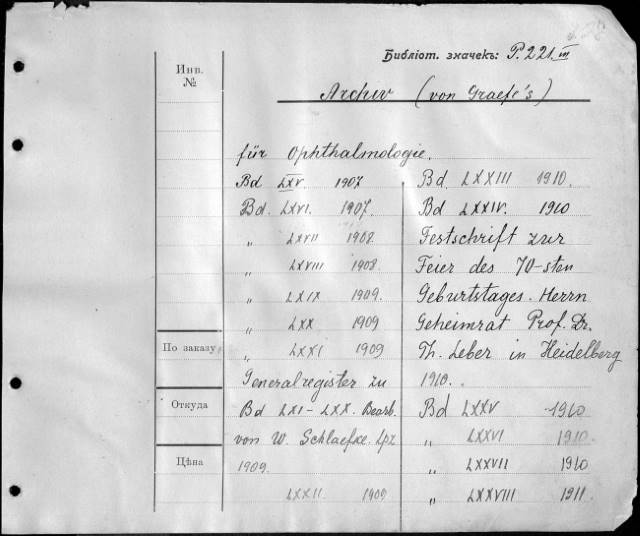 Библіот. значекъ: P. 221 III
Инв.
№
Archiv (von Graefe's)
für Ophthalmologie.
Bd LXV. 1907
Bd. LXVI. 1907.
„ LXVII 1908.
„ LXVIII 1908.
„ LXIX 1909.
„ LXX 1909
„ LXXI 1909
Generalregister zu
Bd LXI-LXX. Bearb.
von W. Schlaefke. Lpz
1909.
LXXII. 1909
Bd. LXXIII 1910.
Bd LXXIV. 1910
Festschrift zur
Feier des 70-sten
Geburtstages. Herrn
Geheimrat Prof. Dr.
Th. Leber in Heidelberg
1910.
Bd LXXV 1910
„ LXXVI 1910.
„ LXXVII 1910
„ LXXVIII 1911.
По заказу
Откуда
Цѣна